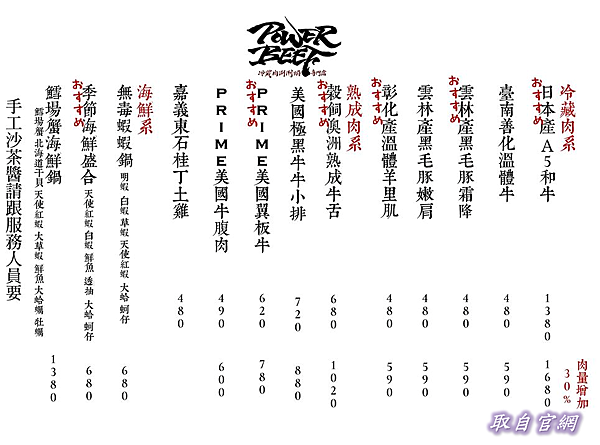 POWER BEEF
冷藏肉系
肉量增加
30%
おすすめ
日本產A5和牛 1380 1680
臺南善化溫體牛 480 590
おすすめ
雲林產黑毛豚霜降 480 590
雲林產黑毛豚嫩肩 480 590
おすすめ
彰化產溫體羊里肌 480 590
熟成肉系
おすすめ
穀飼澳洲熟成牛舌 680 1020
美國極黑牛牛小排 720 880
おすすめ
PRIME美國翼板牛 620 780
PRIME美國牛腹肉 490 600
嘉義東石桂丁土雞 480
海鮮系
無毒蝦蝦鍋 明蝦 白蝦 草蝦 天使紅蝦 大蛤 蚵仔 680
おすすめ
季節海鮮盛合 天使紅蝦 白蝦 鮮魚 透抽 大蛤 蚵仔 680
鱈場蟹海鮮鍋 鱈場蟹 北海道干貝 天使紅蝦 大草蝦 鮮魚 大蛤蠣 牡蠣 1380
手工沙茶醬請跟服務人員要
取自官網